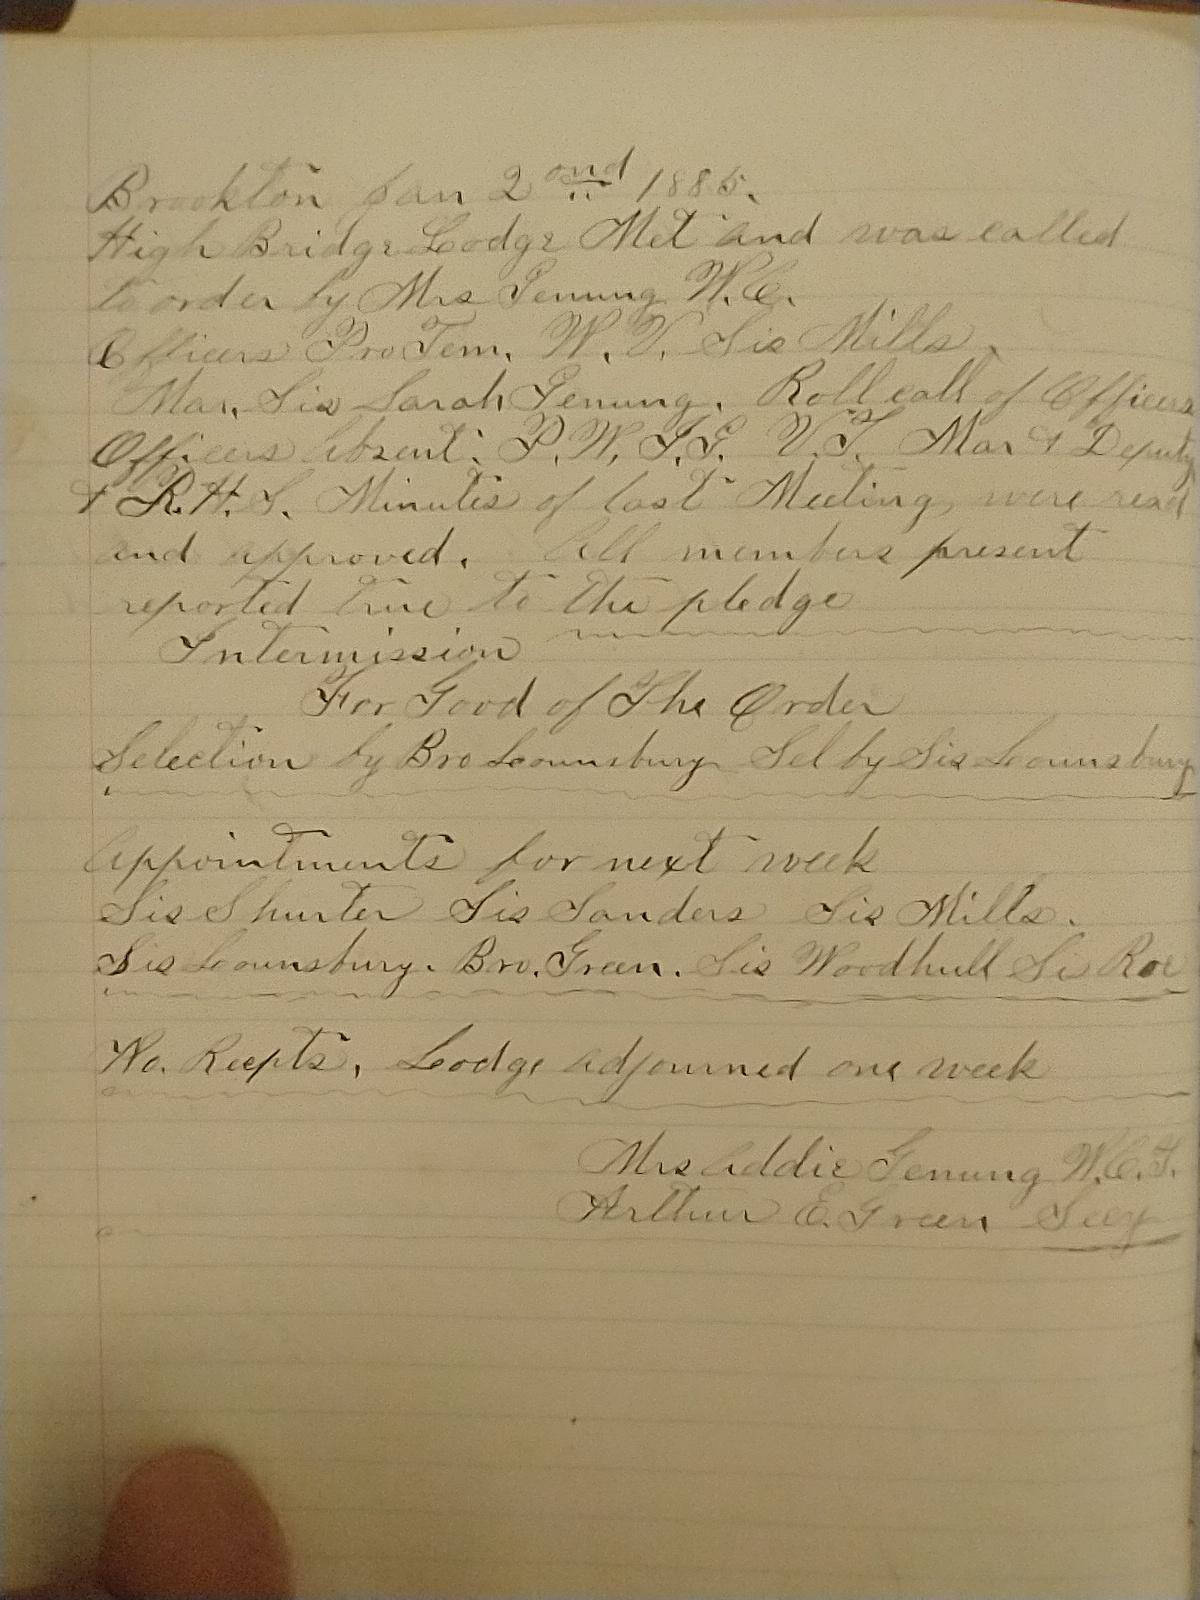 Brookton Jan 2ond 1885.
High Bridge Lodge Met and was called
to order by Mrs Genung W.C.
Officers Pro Tem. W. V. Sis Mills.
Mar. Sis Sarah Genung. Roll call of Officers
Officers Absent: P. W. I.G. V.T. Mar & Deputy
& R.H.S. Minutes of last Meeting, were read
and approved. All members present
reported true to the pledge
Intermission
For Good of The Order
Selection by Bro Lounsbury Sel by Sis Lounsbury
Appointments for next week
Sis Shurter Sis Sanders Sis Mills.
Sis Lounsbury. Bro. Green. Sis Woodhull Si Roe
No. Recpts, Lodge adjourned one week
Mrs Addie Genung W.C.T.
Arthur E. Green Secy